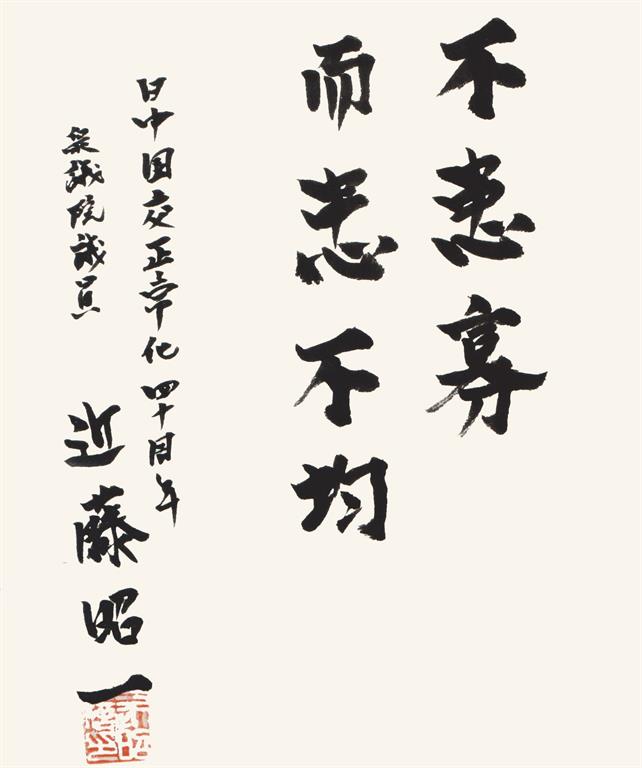 不患寡
而患不均
日中国交正常化四十周年
衆議院議員
近藤昭一